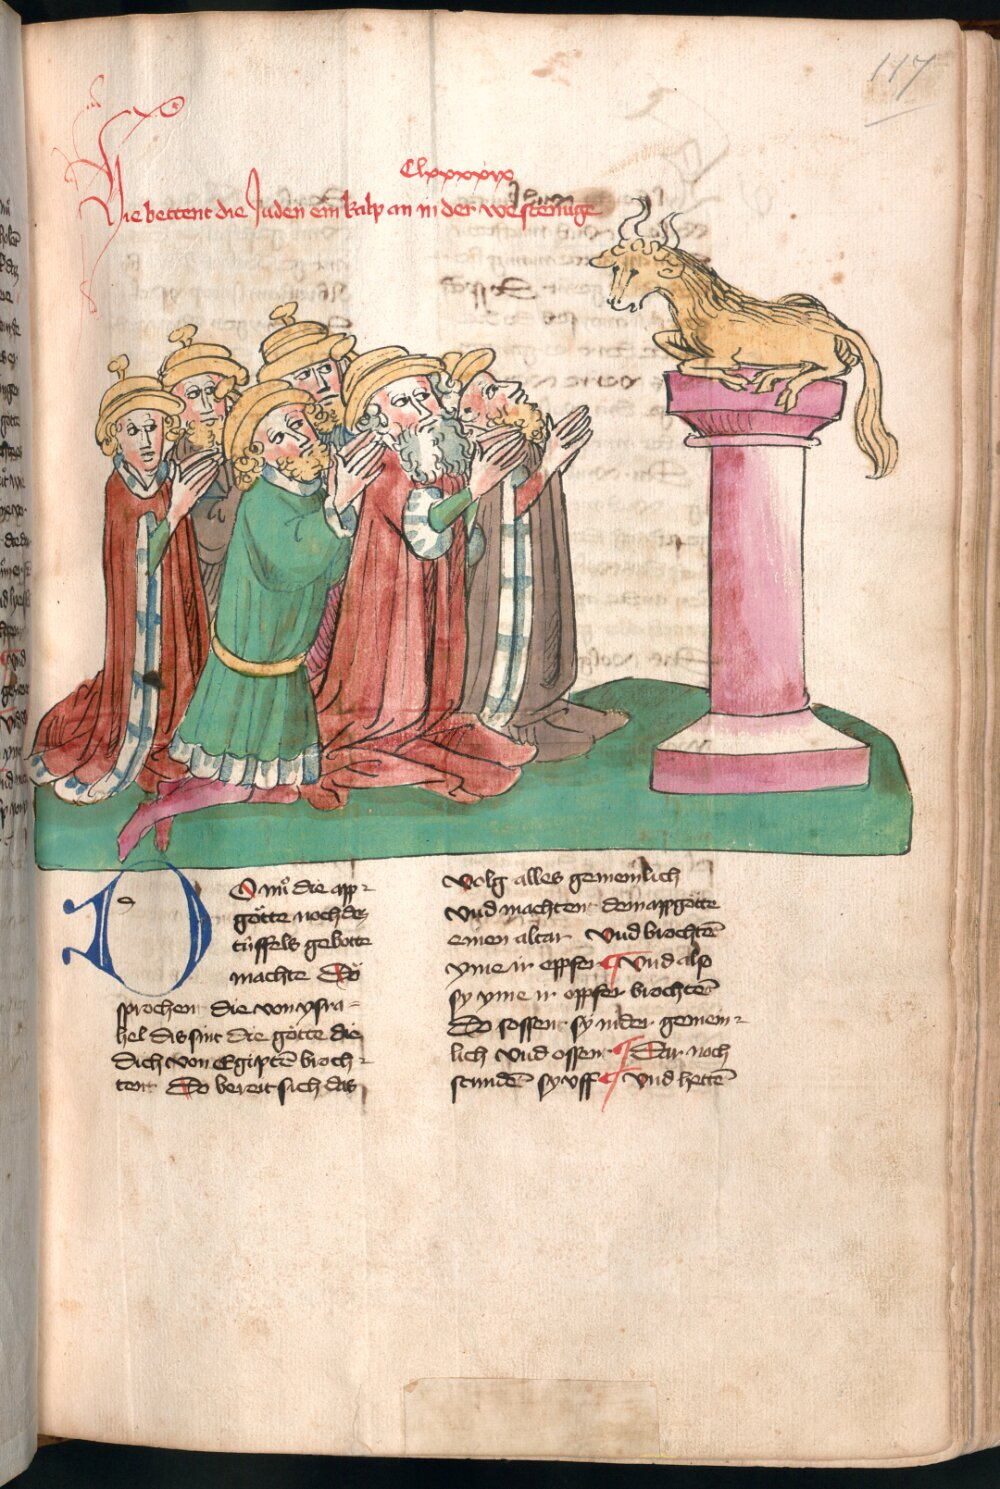 117
Clxxxxix
Hie bettent die Juden ein kalp an in der westenuge
DO nuͦ die app-
götte noch des
tüffels gebotte
machte Do
sprochen die von ysra-
hel dis sint die götte die
dich von Egiptē broch-
tent Do bereit sich das
volg alles gemeinlich
vnd machtent dem appgötte
einen altar vnd brochtē
yme ir oppfer Vnd also
sy yme ir oppfer brochtēt
Do sossent sy nider gemein-
lich vnd ossent Dar noch
stundē sy vff vnd hettē